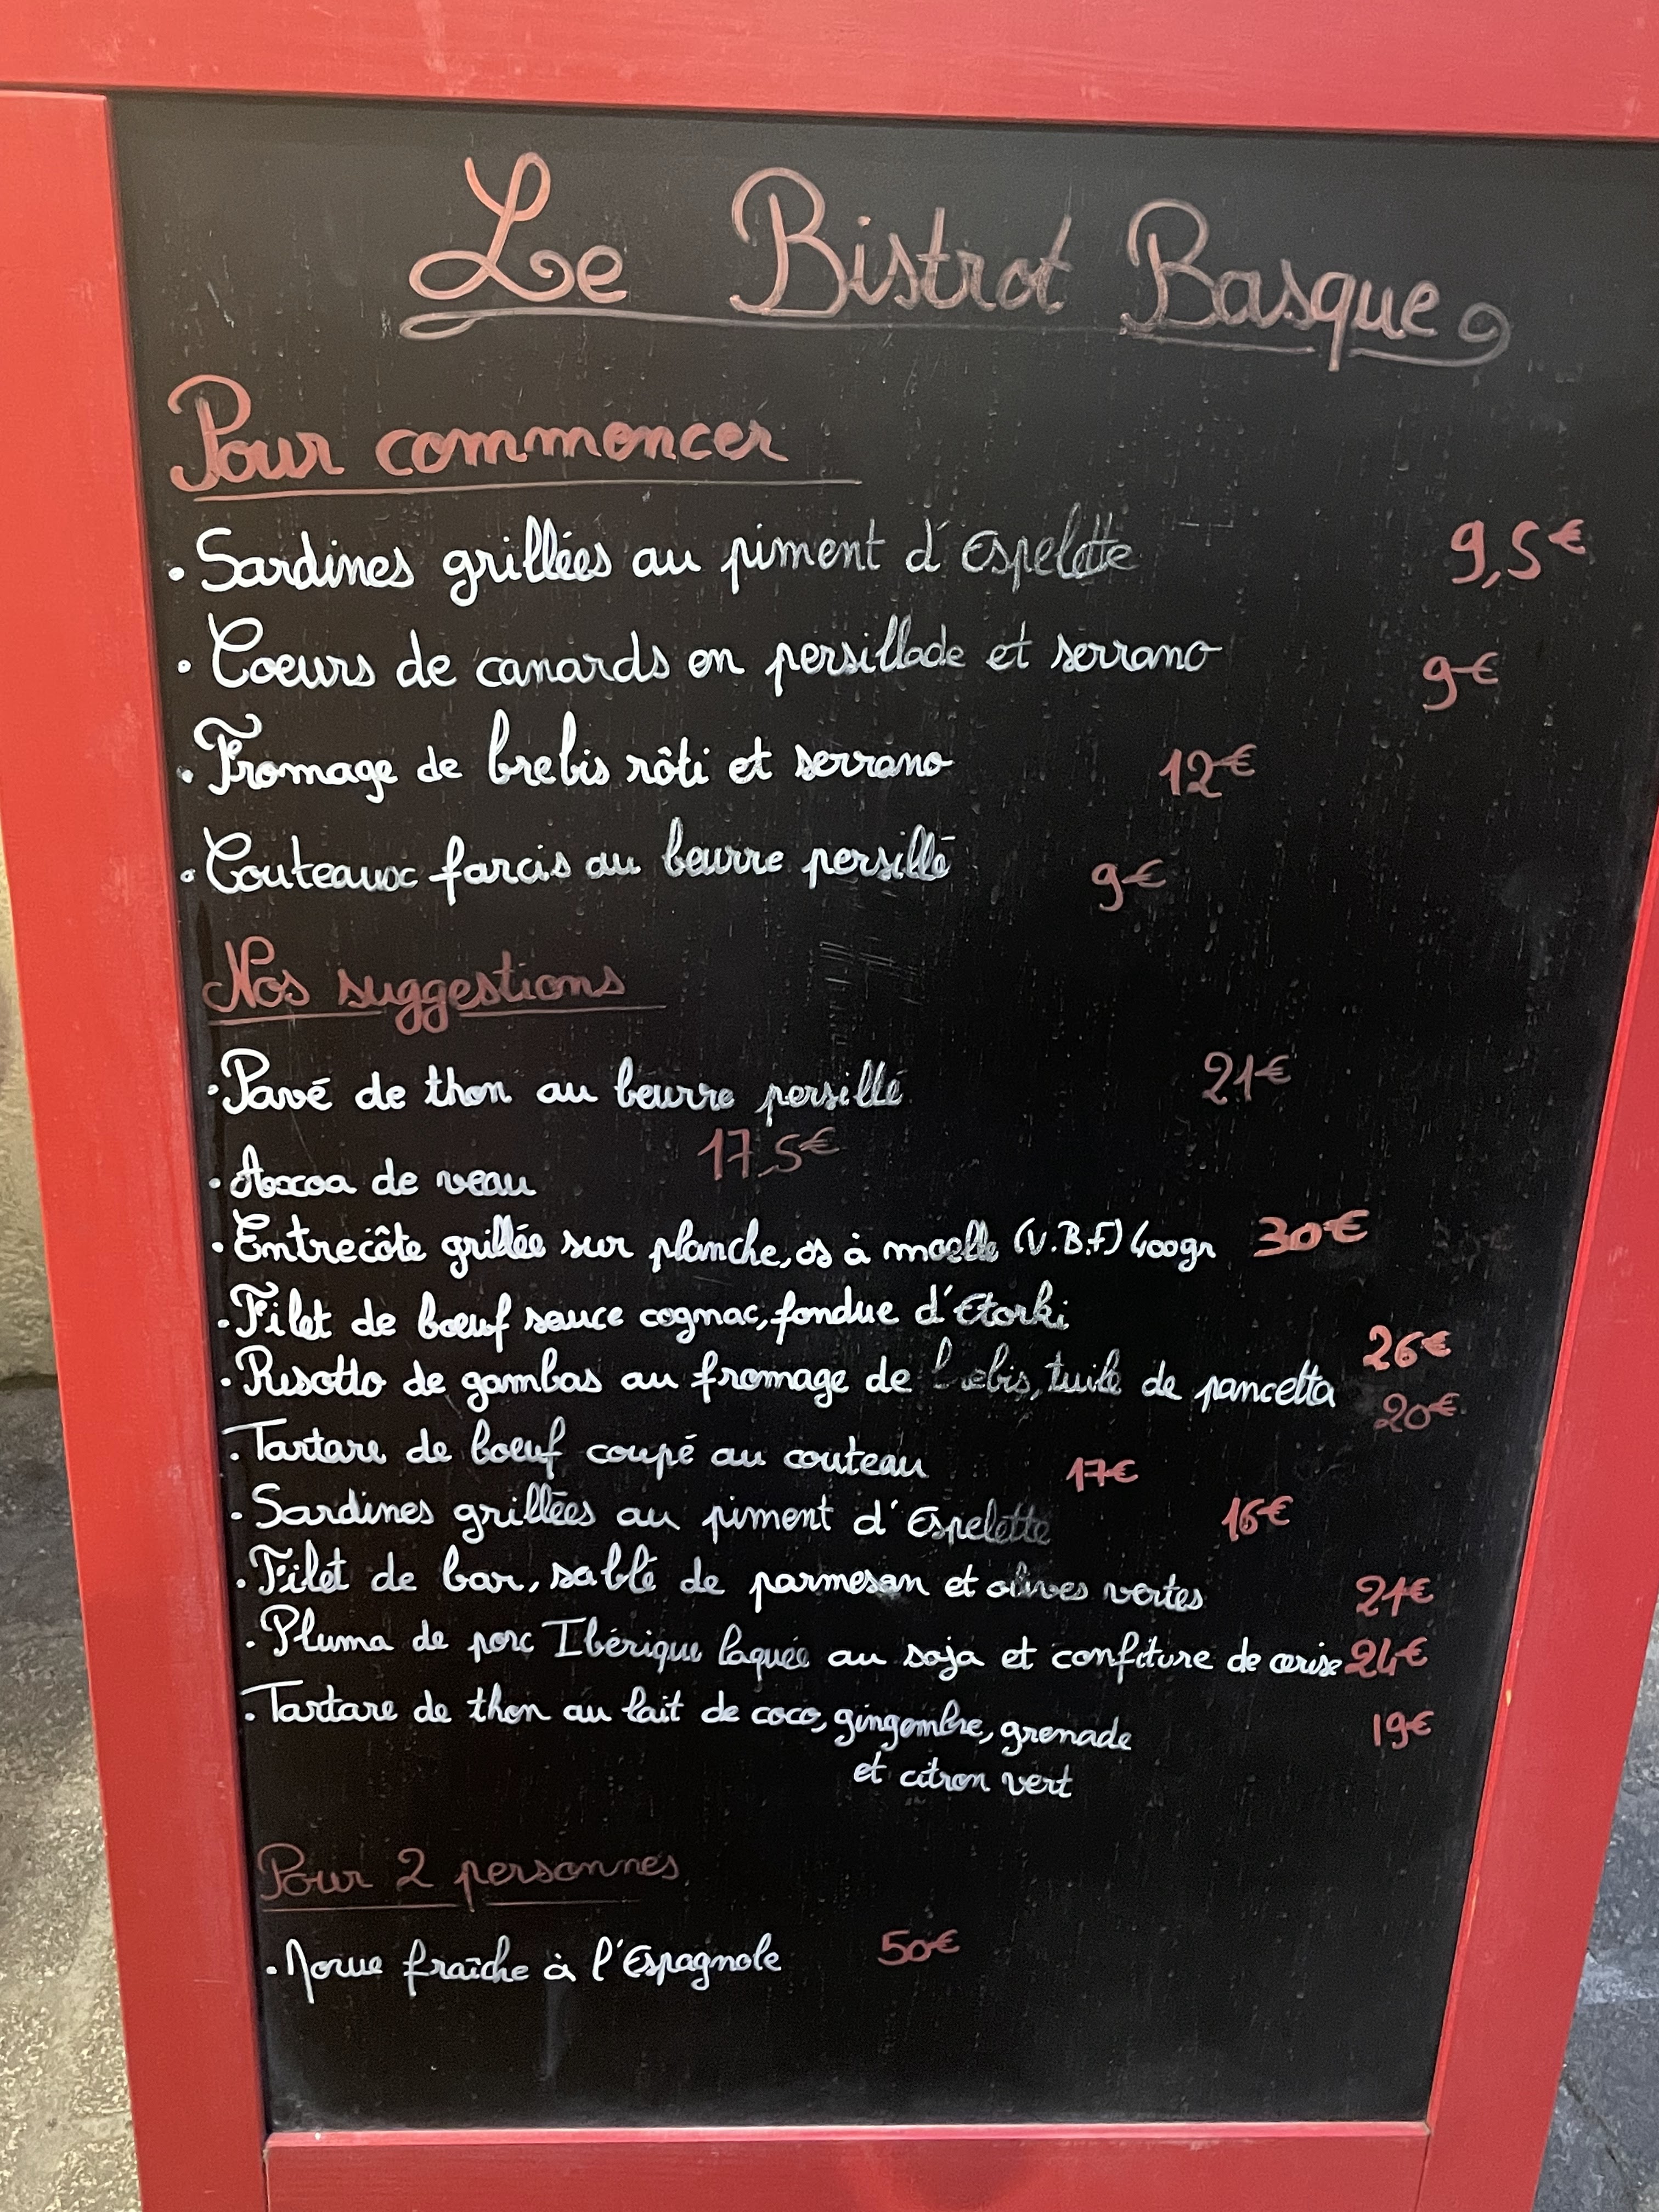 Le Bistrot Basque
Pour commencer
· Sardines grillées au piment d'Espelette 9,5€
· Coeurs de canards en persillade et serrano 9€
· Fromage de brebis rôti et serrano 12€
· Couteaux farcis au beurre persillé 9€
Nos suggestions
· Pavé de thon au beurre persillé 21€
· Axcoa de veau 17,5€
· Entrecôte grillée sur planche, os à moelle (V.B.F) 400gr 30€
· Filet de boeuf sauce cognac, fondue d'Etorki 26€
· Risotto de gambas au fromage de brebis, tuile de pancetta 20€
· Tartare de boeuf coupé au couteau 17€
· Sardines grillées au piment d'Espelette 16€
· Filet de bar, sablé de parmesan et olives vertes 21€
· Pluma de porc Ibérique laquée au soja et confiture de cerise 24€
· Tartare de thon au lait de coco, gingembre, grenade 19€
et citron vert
Pour 2 personnes
· Morue fraîche à l'Espagnole 50€